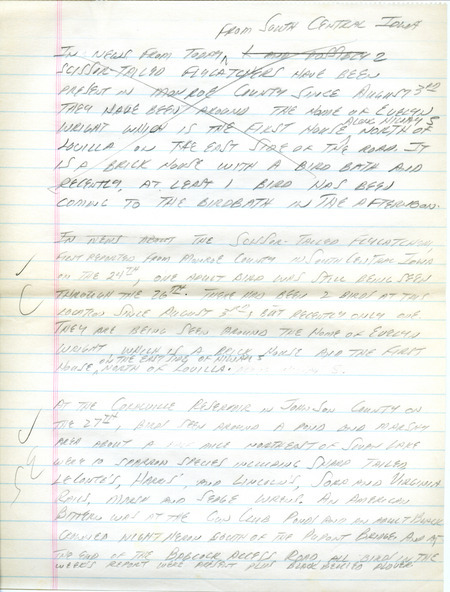 FROM SOUTH CENTRAL IOWA
IN NEWS FROM TODAY, 1 AND POSSIBLY 2
SCISSOR-TAILED FLYCATCHERS HAVE BEEN
PRESENT IN MONROE COUNTY SINCE AUGUST 3RD
THEY HAVE BEEN AROUND THE HOME OF EVELYN
ALONG HIGHWAY 5
WRIGHT WHICH IS THE FIRST HOUSE NORTH OF
LOVILLA ON THE EAST SIDE OF THE ROAD. IT
IS A BRICK HOUSE WITH A BIRD BATH AND
RECENTLY, AT LEAST 1 BIRD HAS BEEN
COMING TO THE BIRDBATH IN THE AFTERNOON.
IN NEWS ABOUT THE SCISSOR-TAILED FLYCATCHER,
FIRST REPORTED FROM MONROE COUNTY IN SOUTH CENTRAL IOWA
ON THE 24TH, ONE ADULT BIRD WAS STILL BEING SEEN
THROUGH THE 26TH. THERE HAD BEEN 2 BIRDS AT THIS
LOCATION SINCE AUGUST 3RD, BUT RECENTLY ONLY ONE.
THEY ARE BEING SEEN AROUND THE HOME OF EVELYN
WRIGHT WHICH IS A BRICK HOUSE AND THE FIRST
ON THE EAST SIDE OF HIGHWAY 5
HOUSE NORTH OF LOVILLA.
AT THE CORALVILLE RESERVOIR IN JOHNSON COUNTY ON
THE 27TH, BIRDS SEEN AROUND A POND AND MARSHY
AREA ABOUT A MILE NORTHEAST OF SWAN LAKE
WERE SPARROW SPECIES INCLUDING SHARP TAILED
LECONTE'S, HARRIS', AND LINCOLN'S, SORA AND VIRGINIA
RAILS, MARSH AND SEDGE WRENS. AN AMERICAN
BITTERN WAS AT THE GUN CLUB PONDS AND AN ADULT BLACK
CROWNED NIGHT HERON SOUTH OF THE DUPONT BRIDGE AND AT
THE END OF THE BABCOCK ACCESS ROAD ALL BIRDS IN THE
WEEK'S REPORT WERE PRESENT PLUS BLACK BELLIED PLOVER